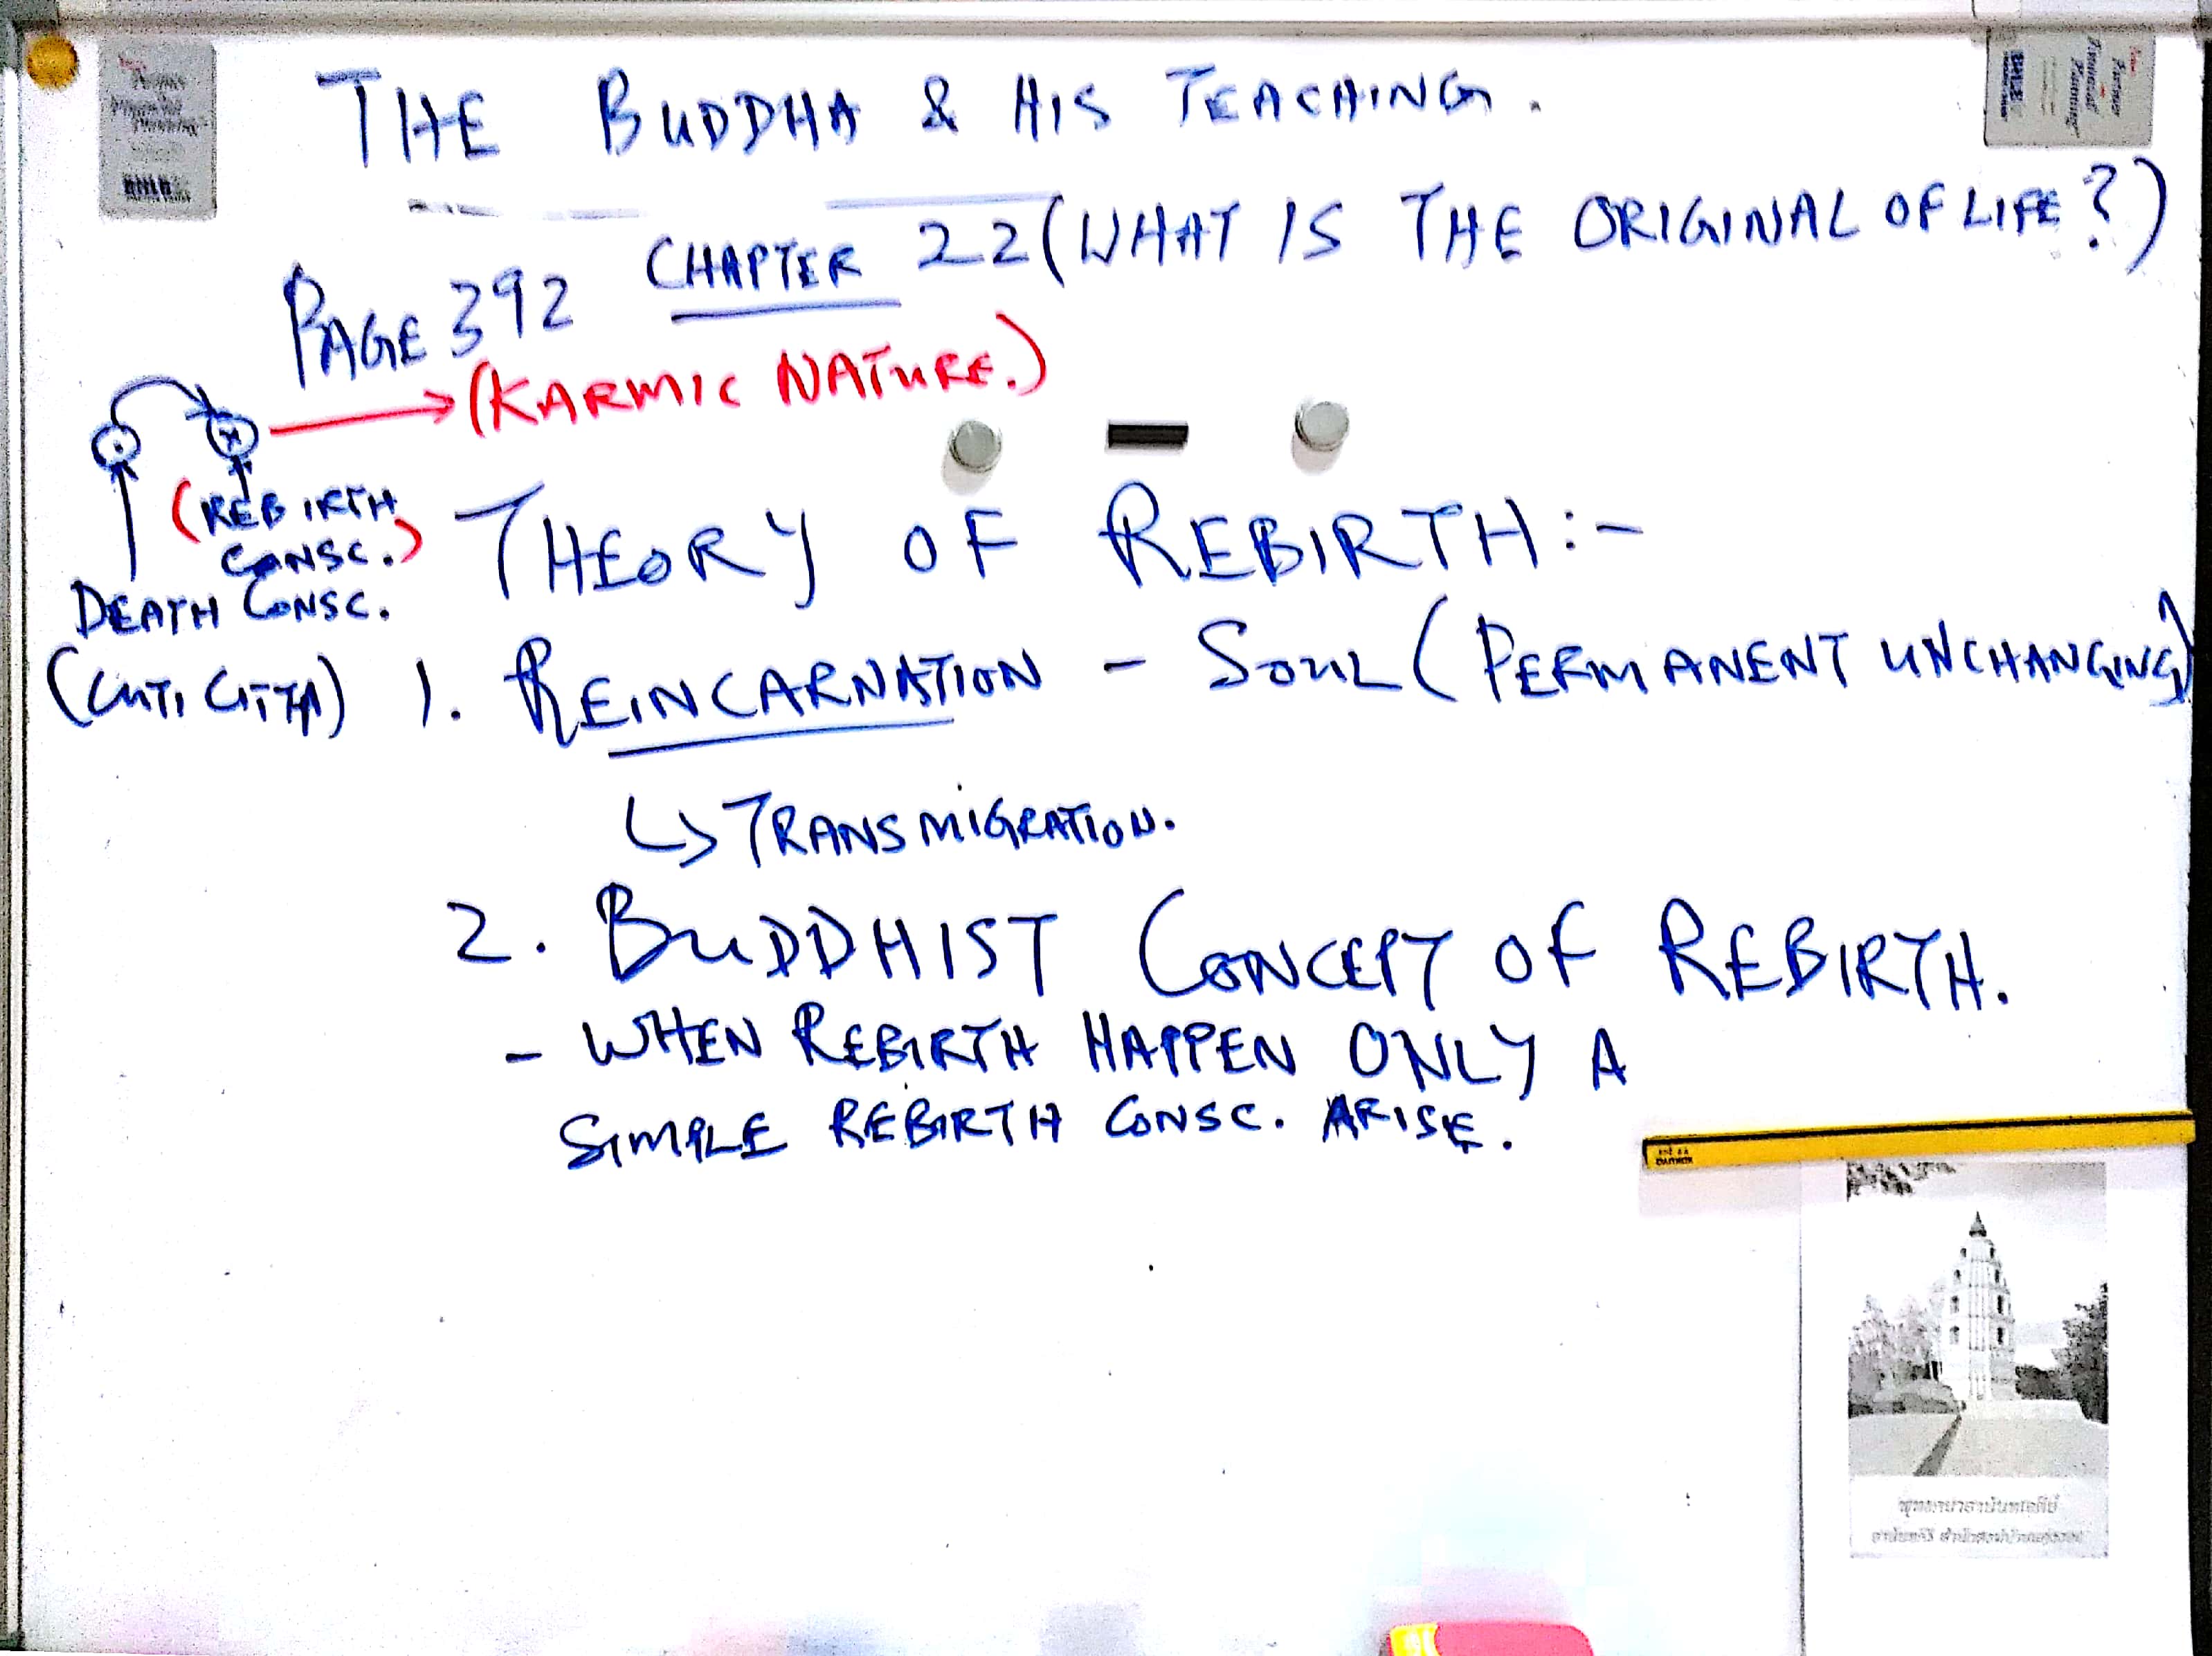 THE BUDDHA & HIS TEACHING.
PAGE 392 CHAPTER 22 (WHAT IS THE ORIGINAL OF LIFE?)
(KARMIC NATURE.)
(REBIRTH
CONSC.)
DEATH CONSC.
(CUTI CITTA)
THEORY OF REBIRTH:-
1. REINCARNATION - SOUL (PERMANENT UNCHANGING)
↳ TRANSMIGRATION.
2. BUDDHIST CONCEPT OF REBIRTH.
- WHEN REBIRTH HAPPEN ONLY A
SIMPLE REBIRTH CONSC. ARISE.